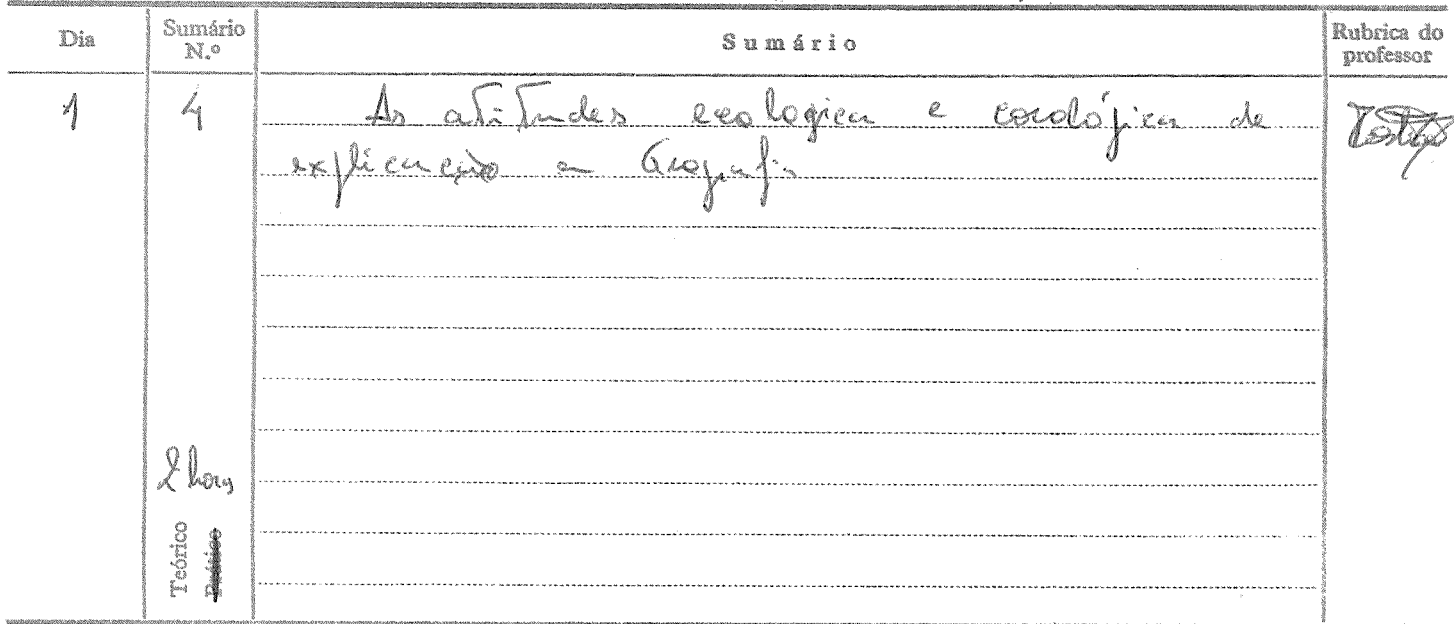 Dia Sumário N.º Sumário Rubrica do professor
1 4 As atitudes ecologica e corológica de
explicação em Geografia
2 horas
Teórico
Prático